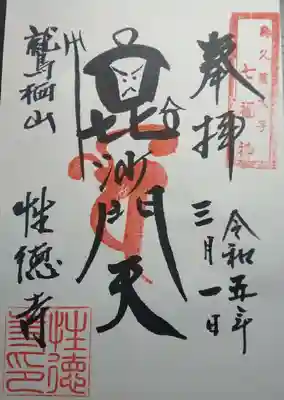 奉拝
令和五年
三月一日
毘沙門天
鷲栖山
性徳寺
七福神
性徳寺印